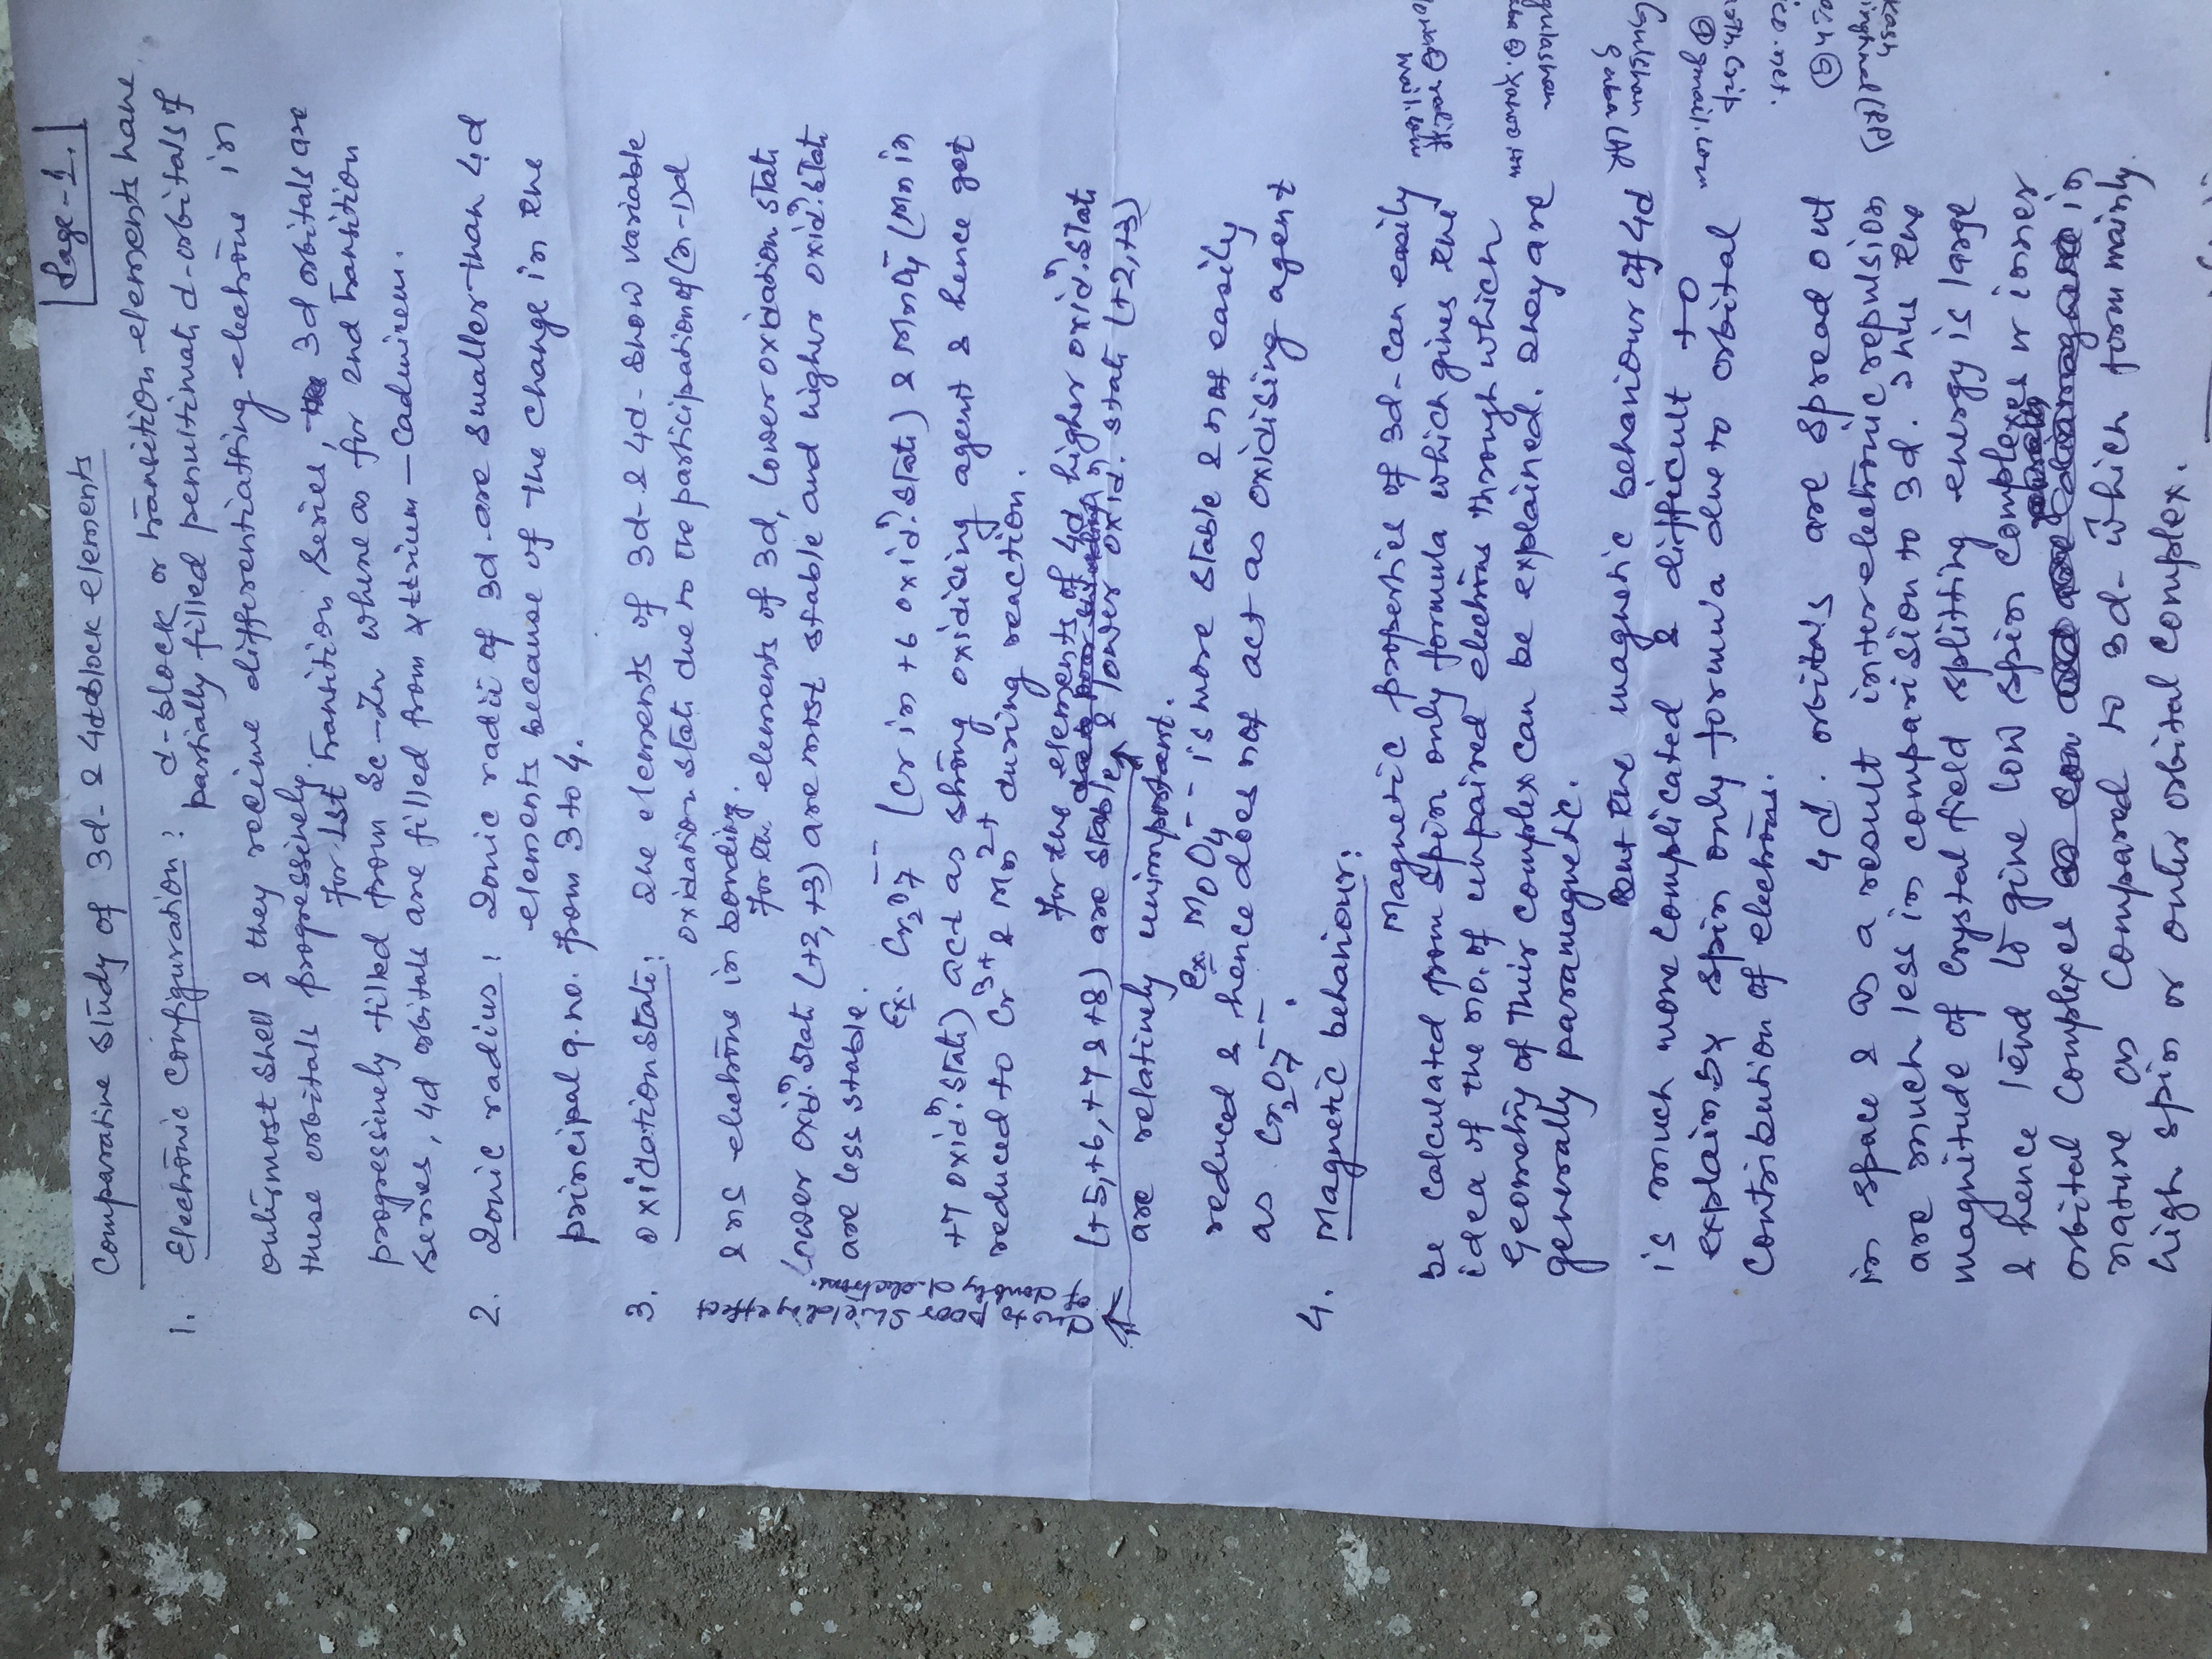 Page-1.
Comparative study of 3d- & 4d block elements
1. Electronic Configuration: d-block or transition elements have
partially filled penultimate d-orbitals of
outermost shell & they receive differentiating electrons in
these orbitals progressively.
For 1st transition series, 3d orbitals are
progressively filled from Sc-Zn where as for 2nd transition
series, 4d orbitals are filled from Yttrium - Cadmium.
2. Ionic radius: Ionic radii of 3d- are smaller than 4d
elements because of the change in the
principal q. no. from 3 to 4.
3. Oxidation state: The elements of 3d- & 4d- show variable
oxidation state due to the participation of (n-1)d
& ns electrons in bonding.
For the elements of 3d, lower oxidation state
(lower oxidn. state (+2, +3) are most stable and higher oxidn. state
are less stable.
Ex. Cr2O7-- (Cr in +6 oxidn. state) & MnO4- (Mn in
+7 oxidn. state) act as strong oxidising agent & hence get
reduced to Cr3+ & Mn2+ during reaction.
For the elements of 4d higher oxidn. state
(+5, +6, +7 & +8) are stable & lower oxidn. state (+2, +3)
are relatively unimportant.
Ex. MoO4-- is more stable & not easily
reduced & hence does not act as oxidising agent
as Cr2O7--.
4. Magnetic behaviour:
Magnetic properties of 3d- can easily
be calculated from spin only formula which gives the
idea of the no. of unpaired electrons through which
Geometry of their complex can be explained. They are
generally paramagnetic.
But the magnetic behaviour of 4d
is much more complicated & difficult to
explain by spin only formula due to orbital
contribution of electrons.
4d. orbitals are spread out
in space & as a result interelectronic repulsion
are much less in comparision to 3d. Thus the
magnitude of crystal field splitting energy is large
& hence tend to give low spin complexes or inner
orbital complexes in
nature as compared to 3d- which form mainly
high spin or outer orbital complex.